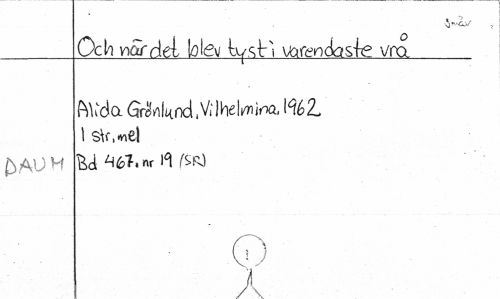 Småv
Och när det blev tyst i varendaste vrå
Alida Grönlund, Vilhelmina, 1962
1 str, mel
DAUM Bd 467. nr 19 (SR)